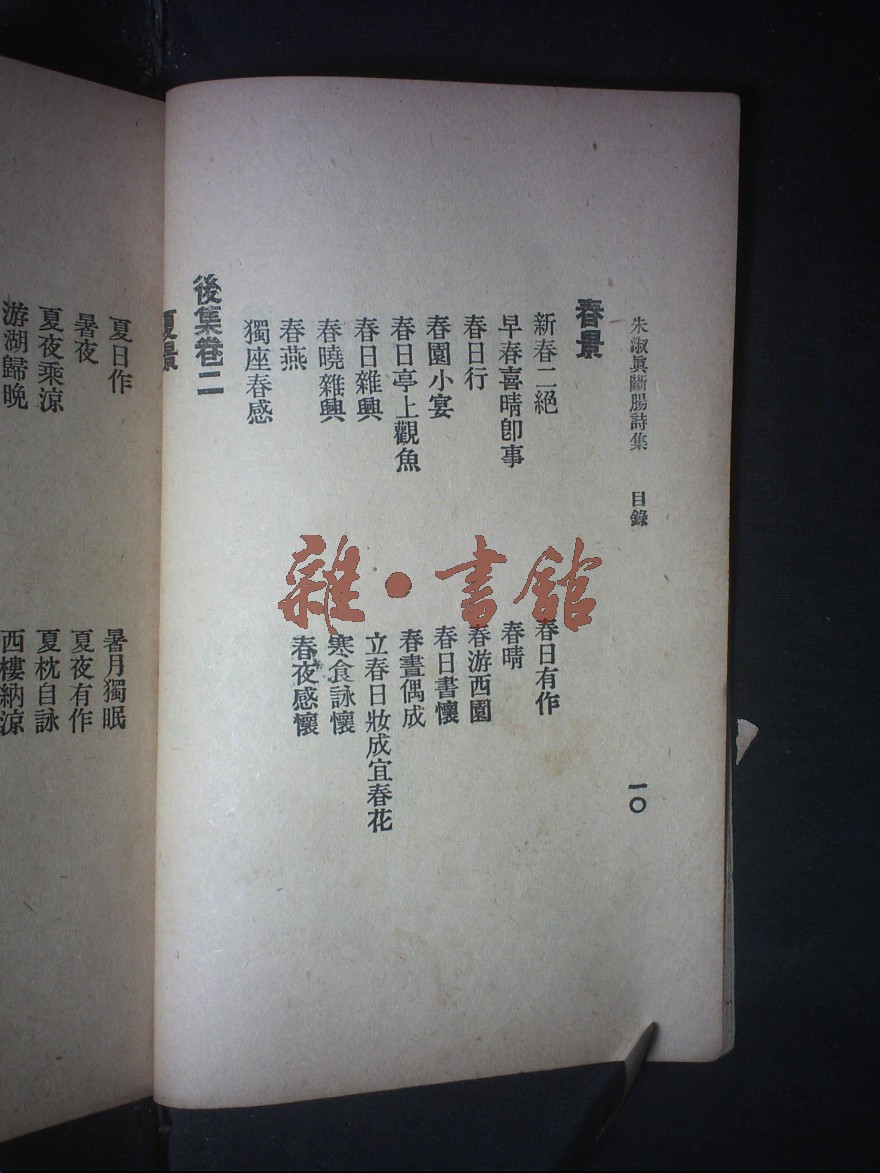 朱淑眞斷腸詩集 目錄 一〇
春景
新春二絕 春日有作
早春喜晴卽事 春晴
春日行 春游西園
春園小宴 春日書懷
春日亭上觀魚 春晝偶成
春日雜興 立春日妝成宜春花
春曉雜興 寒食詠懷
春燕 春夜感懷
獨座春感
後集卷二
夏景
夏日作 暑月獨眠
暑夜 夏夜有作
夏夜乘涼 夏枕自詠
游湖歸晚 西樓納涼
雜·書館